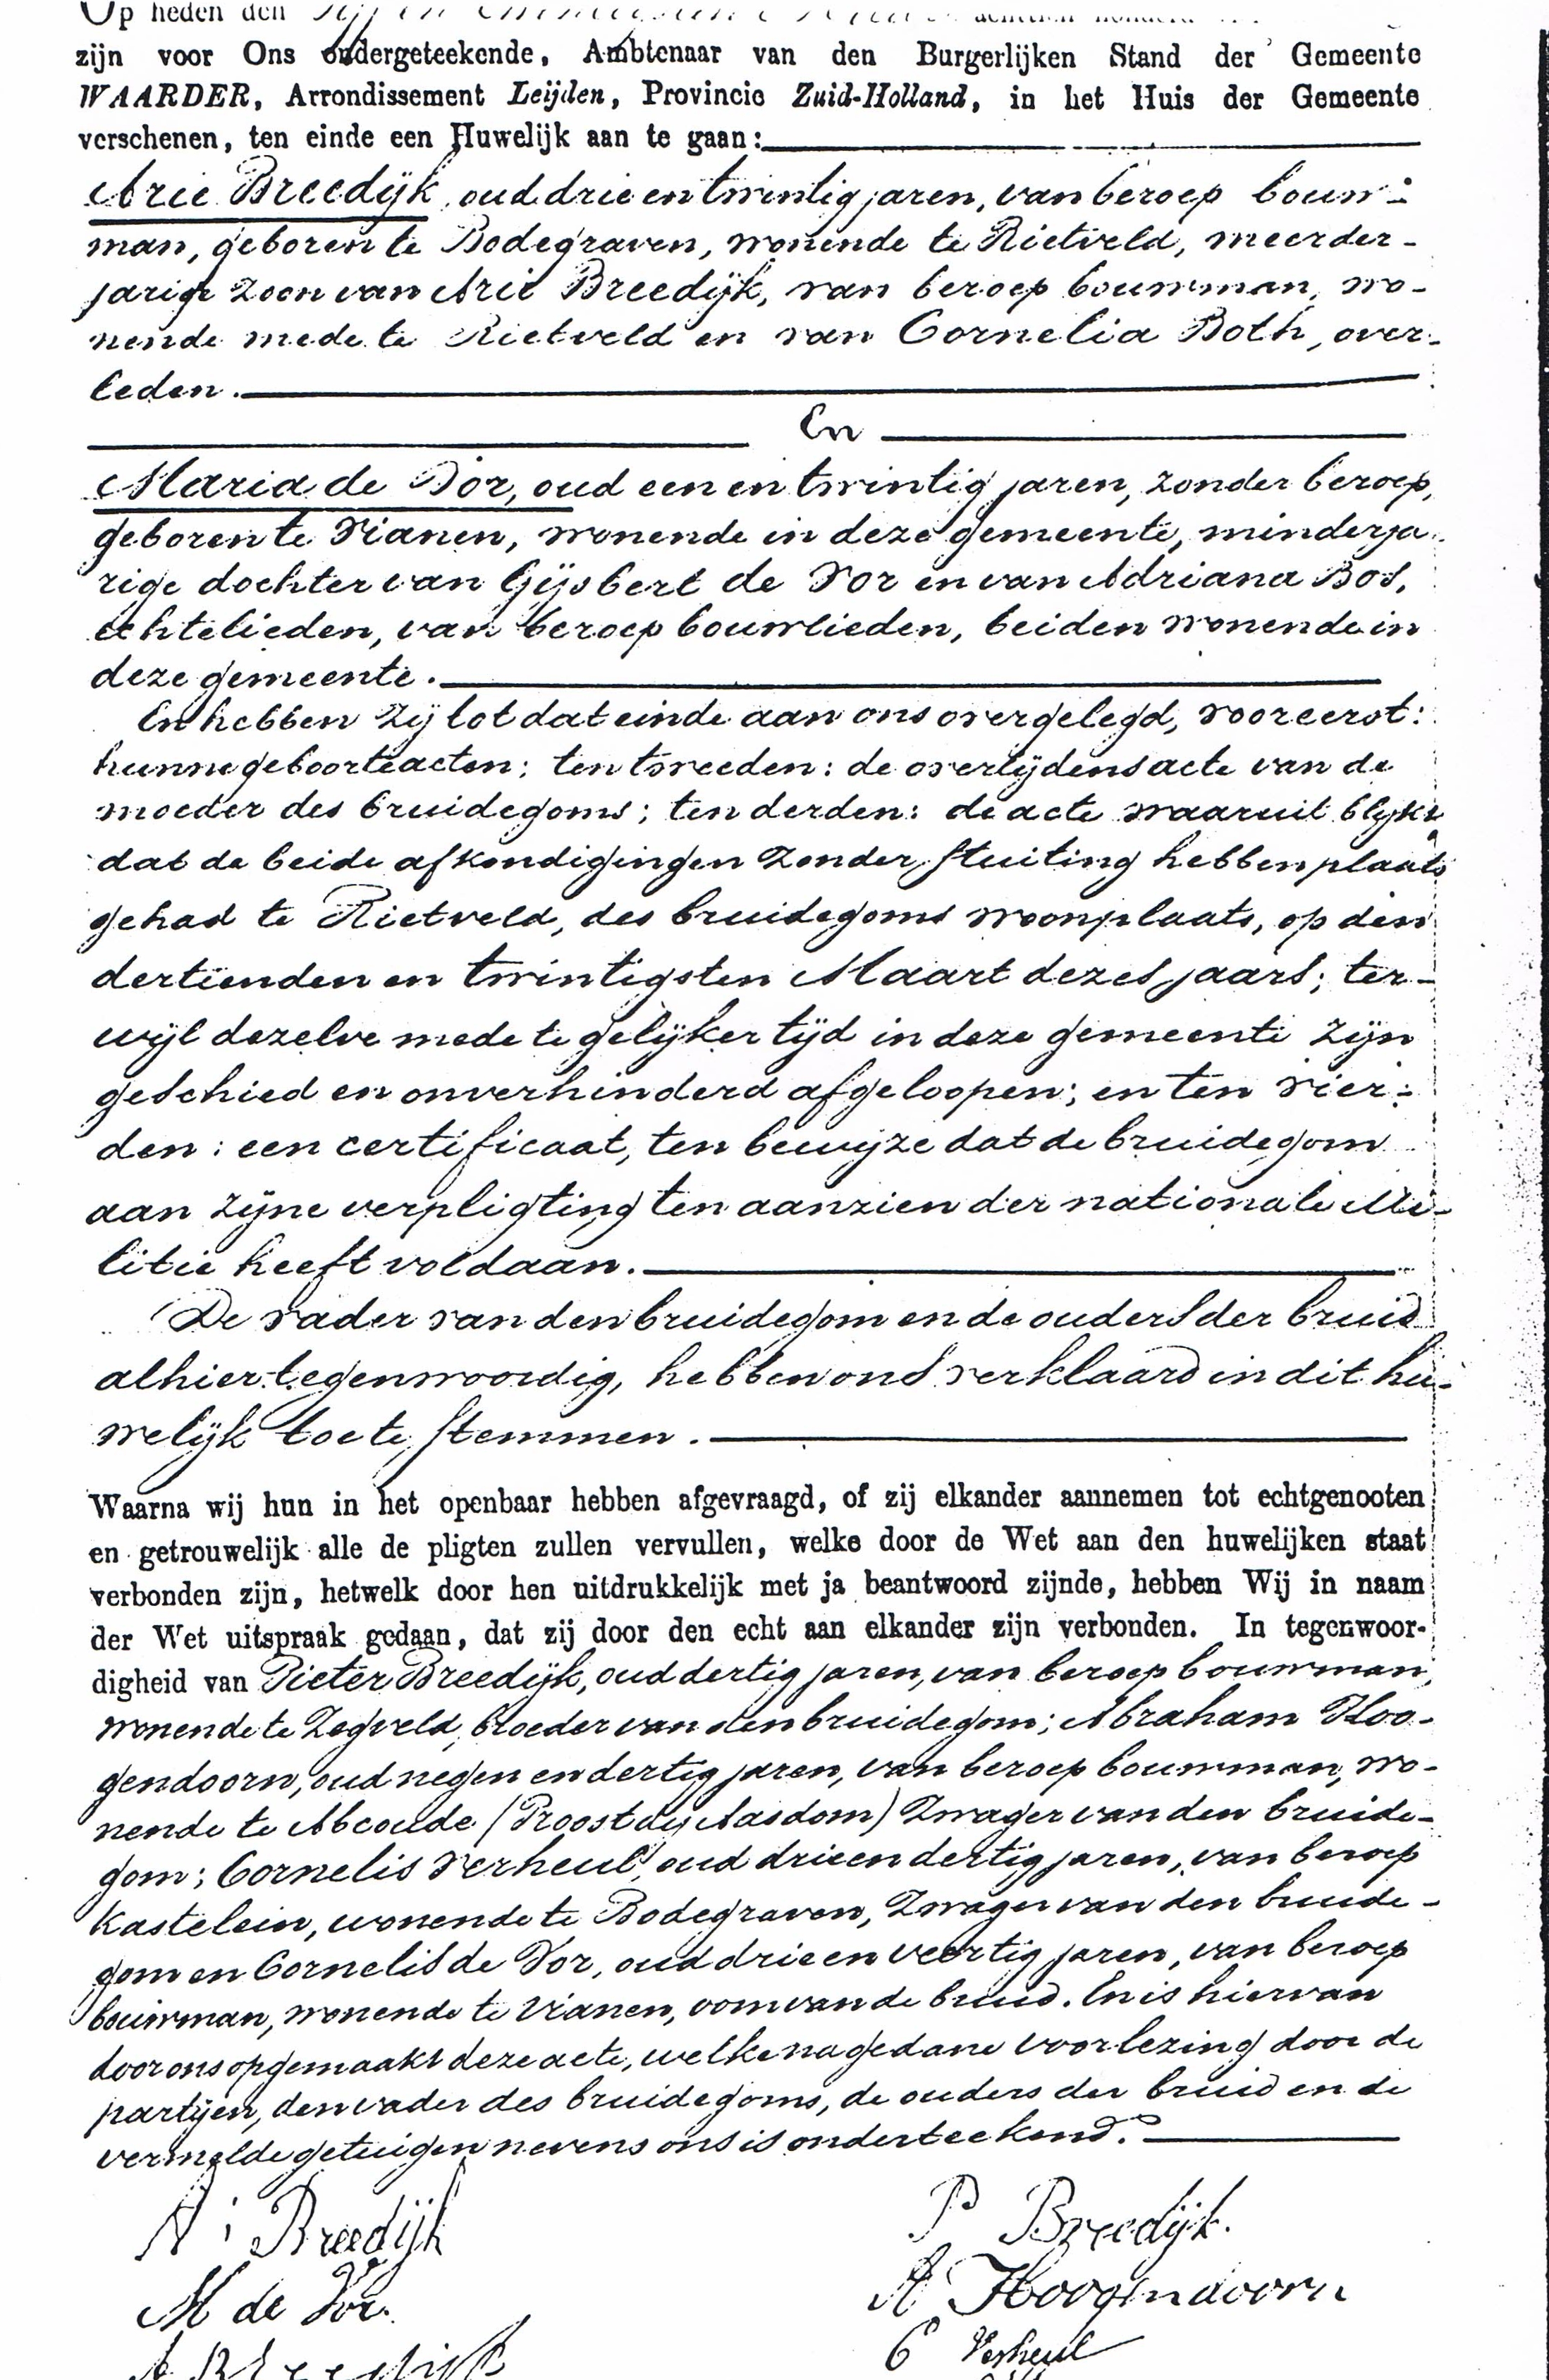 Op heden den
zijn voor Ons ondergeteekende, Ambtenaar van den Burgerlijken Stand der Gemeente
WAARDER, Arrondissement Leijden, Provincie Zuid-Holland, in het Huis der Gemeente
verschenen, ten einde een Huwelijk aan te gaan:
Arie Breedijk, oud drie en twintig jaren, van beroep bouw-
man, geboren te Bodegraven, wonende te Rietveld, meerder-
jarige zoon van Arie Breedijk, van beroep bouwman, wo-
nende mede te Rietveld en van Cornelia Both, over-
leden.
En
Maria de Vor, oud een en twintig jaren, zonder beroep,
geboren te Vianen, wonende in deze gemeente, minderja-
rige dochter van Gijsbert de Vor en van Adriana Bos,
echtelieden, van beroep bouwlieden, beiden wonende in
deze gemeente.
En hebben zij tot dat einde aan ons overgelegd, vooreerst:
hunne geboorteacten; ten tweeden: de overlijdensacte van de
moeder des bruidegoms; ten derden: de acte waaruit blijkt
dat de beide afkondigingen zonder stuiting hebben plaats
gehad te Rietveld, des bruidegoms woonplaats, op den
dertienden en twintigsten Maart dezes jaars; ter-
wijl dezelve mede te gelijker tijd in deze gemeente zijn
geschied en onverhinderd afgeloopen; en ten vier-
den: een certificaat, ten bewijze dat de bruidegom
aan zijne verpligting ten aanzien der nationale Mi-
litie heeft voldaan.
De vader van den bruidegom en de ouders der bruid
alhier tegenwoordig, hebben ons verklaard in dit hu-
welijk toe te stemmen.
Waarna wij hun in het openbaar hebben afgevraagd, of zij elkander aannemen tot echtgenooten
en getrouwelijk alle de pligten zullen vervullen, welke door de Wet aan den huwelijken staat
verbonden zijn, hetwelk door hen uitdrukkelijk met ja beantwoord zijnde, hebben Wij in naam
der Wet uitspraak gedaan, dat zij door den echt aan elkander zijn verbonden. In tegenwoor-
digheid van Pieter Breedijk, oud dertig jaren, van beroep bouwman,
wonende te Zegveld, broeder van den bruidegom; Abraham Hoo-
gendoorn, oud negen en dertig jaren, van beroep bouwman, wo-
nende te Abcoude (Proostdij Aasdom) Zwager van den bruide-
gom; Cornelis Verheul, oud drie en dertig jaren, van beroep
kastelein, wonende te Bodegraven, Zwager van den bruide-
gom en Cornelis de Vor, oud drie en veertig jaren, van beroep
bouwman, wonende te Vianen, oom van de bruid. En is hiervan
door ons opgemaakt deze acte, welke na gedane voorlezing door de
partijen, den vader des bruidegoms, de ouders der bruid en de
vermelde getuigen nevens ons is onderteekend.
A: Breedijk
P Breedijk.
M de Vor.
A Hoogendoorn
A Breedijk
C Verheul